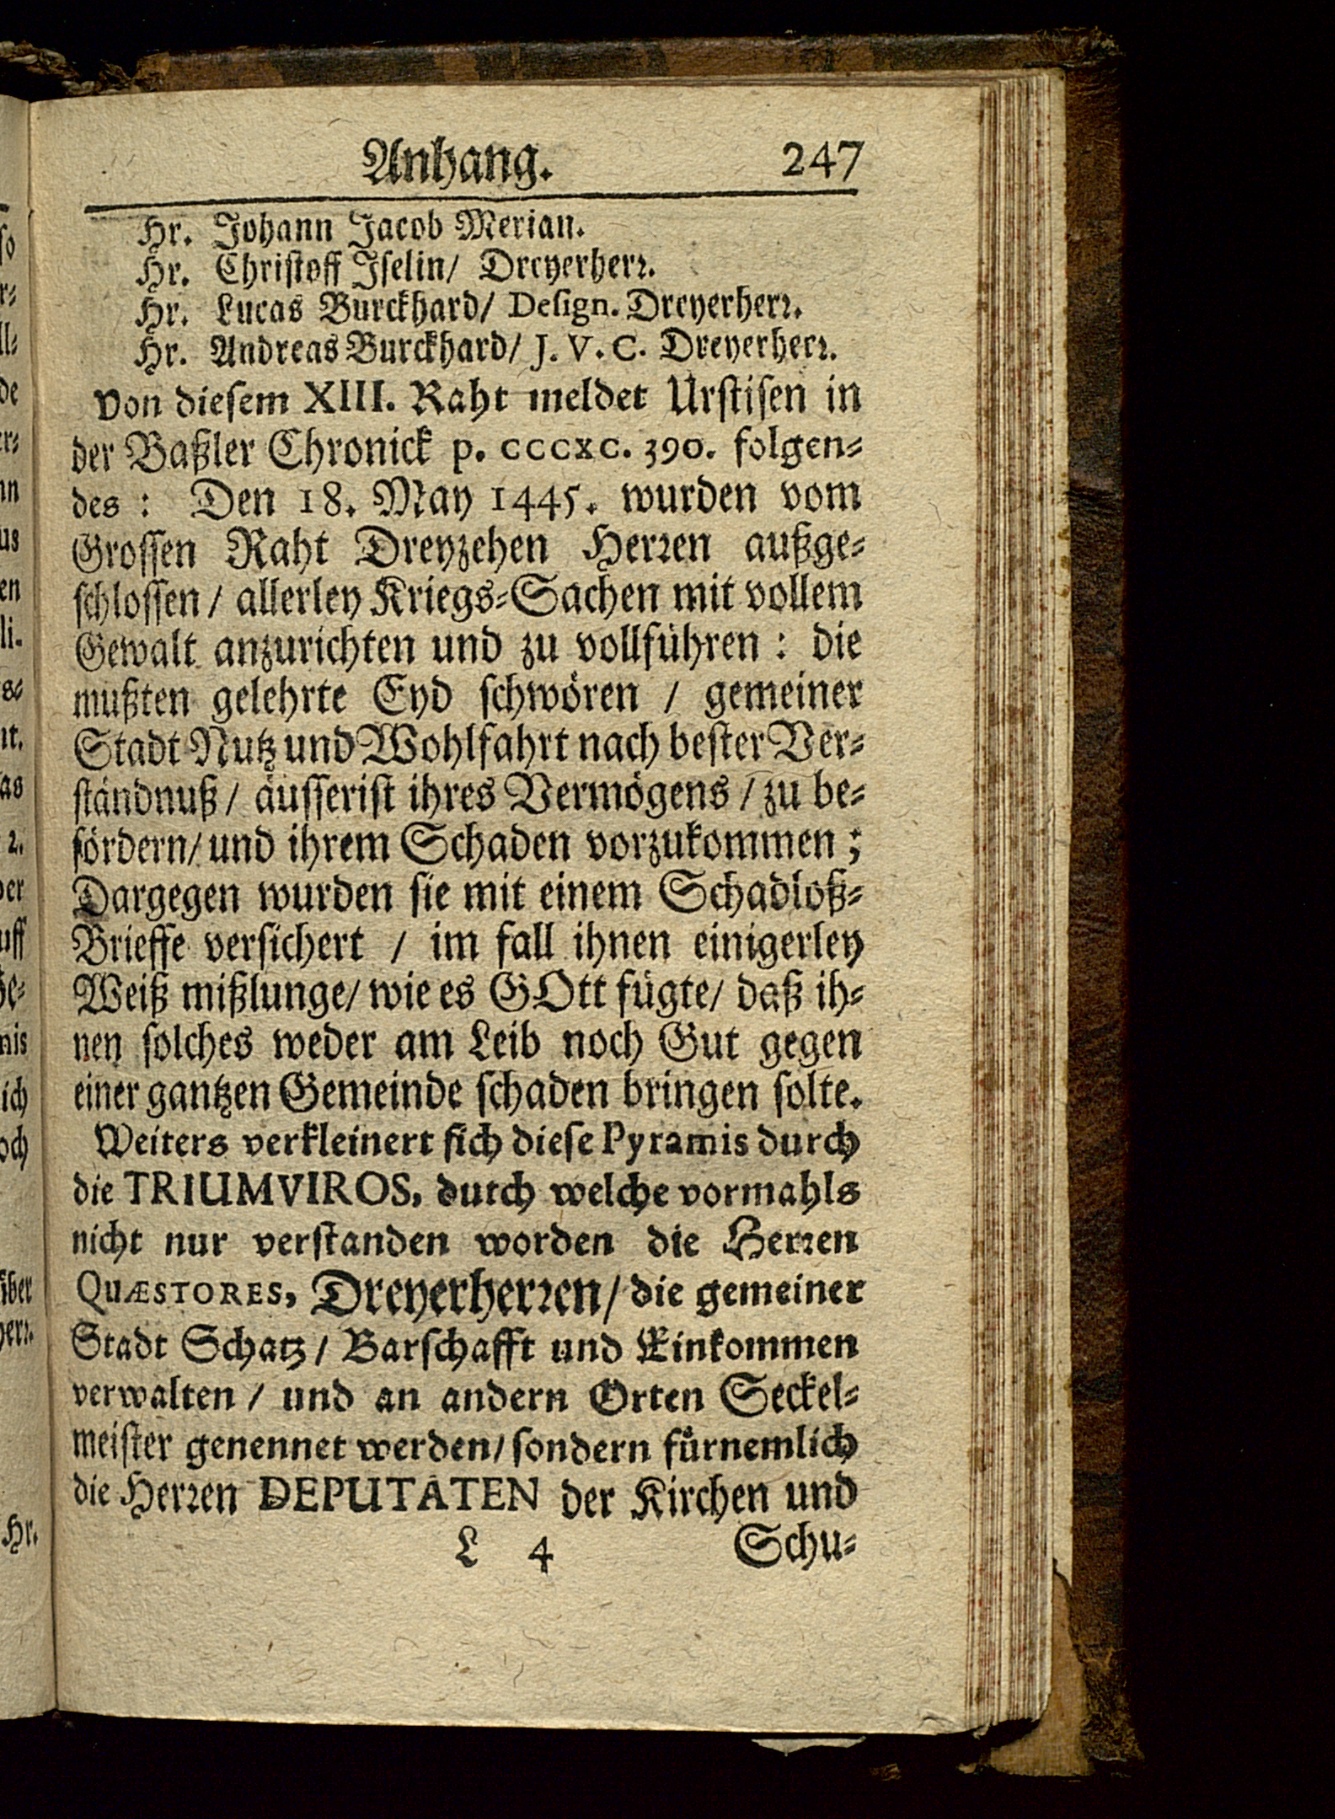 Anhang. 247
Hr. Johann Jacob Merian.
Hr. Christoff Iselin/ Dreyerherr.
Hr. Lucas Burckhard/ Design. Dreyerherr.
Hr. Andreas Burckhard/ J. V. C. Dreyerherr.
Von diesem XIII. Raht meldet Urstisen in
der Baßler Chronick p. CCCXC. 390. folgen-
des: Den 18. May 1445. wurden vom
Grossen Raht Dreyzehen Herren außge-
schlossen / allerley Kriegs-Sachen mit vollem
Gewalt anzurichten und zu vollführen: die
mußten gelehrte Eyd schwören / gemeiner
Stadt Nutz und Wohlfahrt nach bester Ver-
ständnuß / äusserist ihres Vermögens / zu be-
fördern/ und ihrem Schaden vorzukommen;
Dargegen wurden sie mit einem Schadloß-
Brieffe versichert / im fall ihnen einigerley
Weiß mißlunge/ wie es GOtt fügte/ daß ih-
nen solches weder am Leib noch Gut gegen
einer gantzen Gemeinde schaden bringen solte.
Weiters verkleinert sich diese Pyramis durch
die TRIUMVIROS, durch welche vormahls
nicht nur verstanden worden die Herren
QUÆSTORES, Dreyerherren/ die gemeiner
Stadt Schatz / Barschafft und Einkommen
verwalten / und an andern Orten Seckel-
meister genennet werden/ sondern fürnemlich
die Herren DEPUTATEN der Kirchen und
L 4 Schu-